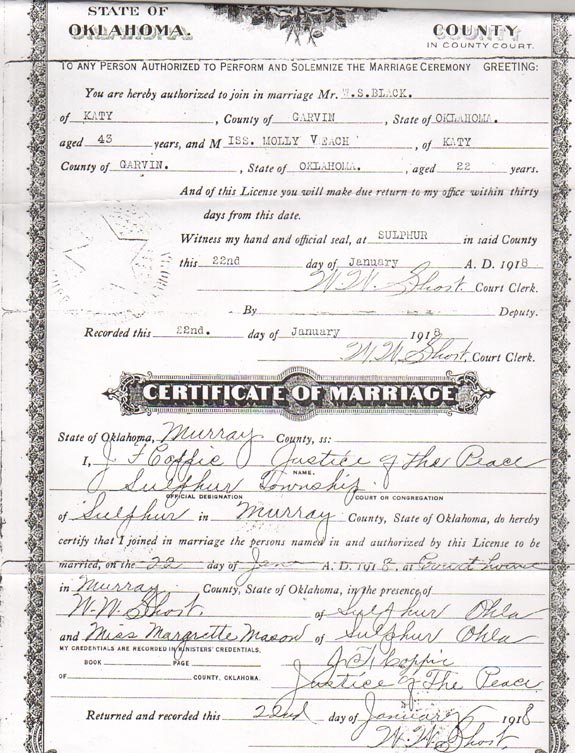 STATE OF
OKLAHOMA.
COUNTY
IN COUNTY COURT.
TO ANY PERSON AUTHORIZED TO PERFORM AND SOLEMNIZE THE MARRIAGE CEREMONY GREETING:
You are hereby authorized to join in marriage Mr. W.S.BLACK.
of KATY, County of GARVIN, State of OKLAHOMA.
aged 43 years, and M ISS. MOLLY VEACH, of KATY
County of GARVIN., State of OKLAHOMA., aged 22 years.
And of this License you will make due return to my office within thirty
days from this date.
Witness my hand and official seal, at SULPHUR in said County
this 22nd day of January A. D. 1918
W.W. Shost Court Clerk.
By Deputy.
Recorded this 22nd. day of January 1918
W.W. Shost Court Clerk.
CERTIFICATE OF MARRIAGE
State of Oklahoma, Murray County, ss:
I, J F Coppic Justice of The Peace
NAME.
Sulphur Township
OFFICIAL DESIGNATION COURT OR CONGREGATION
of Sulphur in Murray County, State of Oklahoma, do hereby
certify that I joined in marriage the persons named in and authorized by this License to be
married, on the 22 day of Jan A. D. 1918, at Court house
in Murray County, State of Oklahoma, in the presence of
W.W. Shost of Sulphur Okla
and Miss Margrette Mason of Sulphur Okla
MY CREDENTIALS ARE RECORDED IN MINISTERS' CREDENTIALS,
BOOK PAGE J. F. Coppic
OF COUNTY, OKLAHOMA. Justice of The Peace
Returned and recorded this 22nd day of January 1918
W.W. Shost